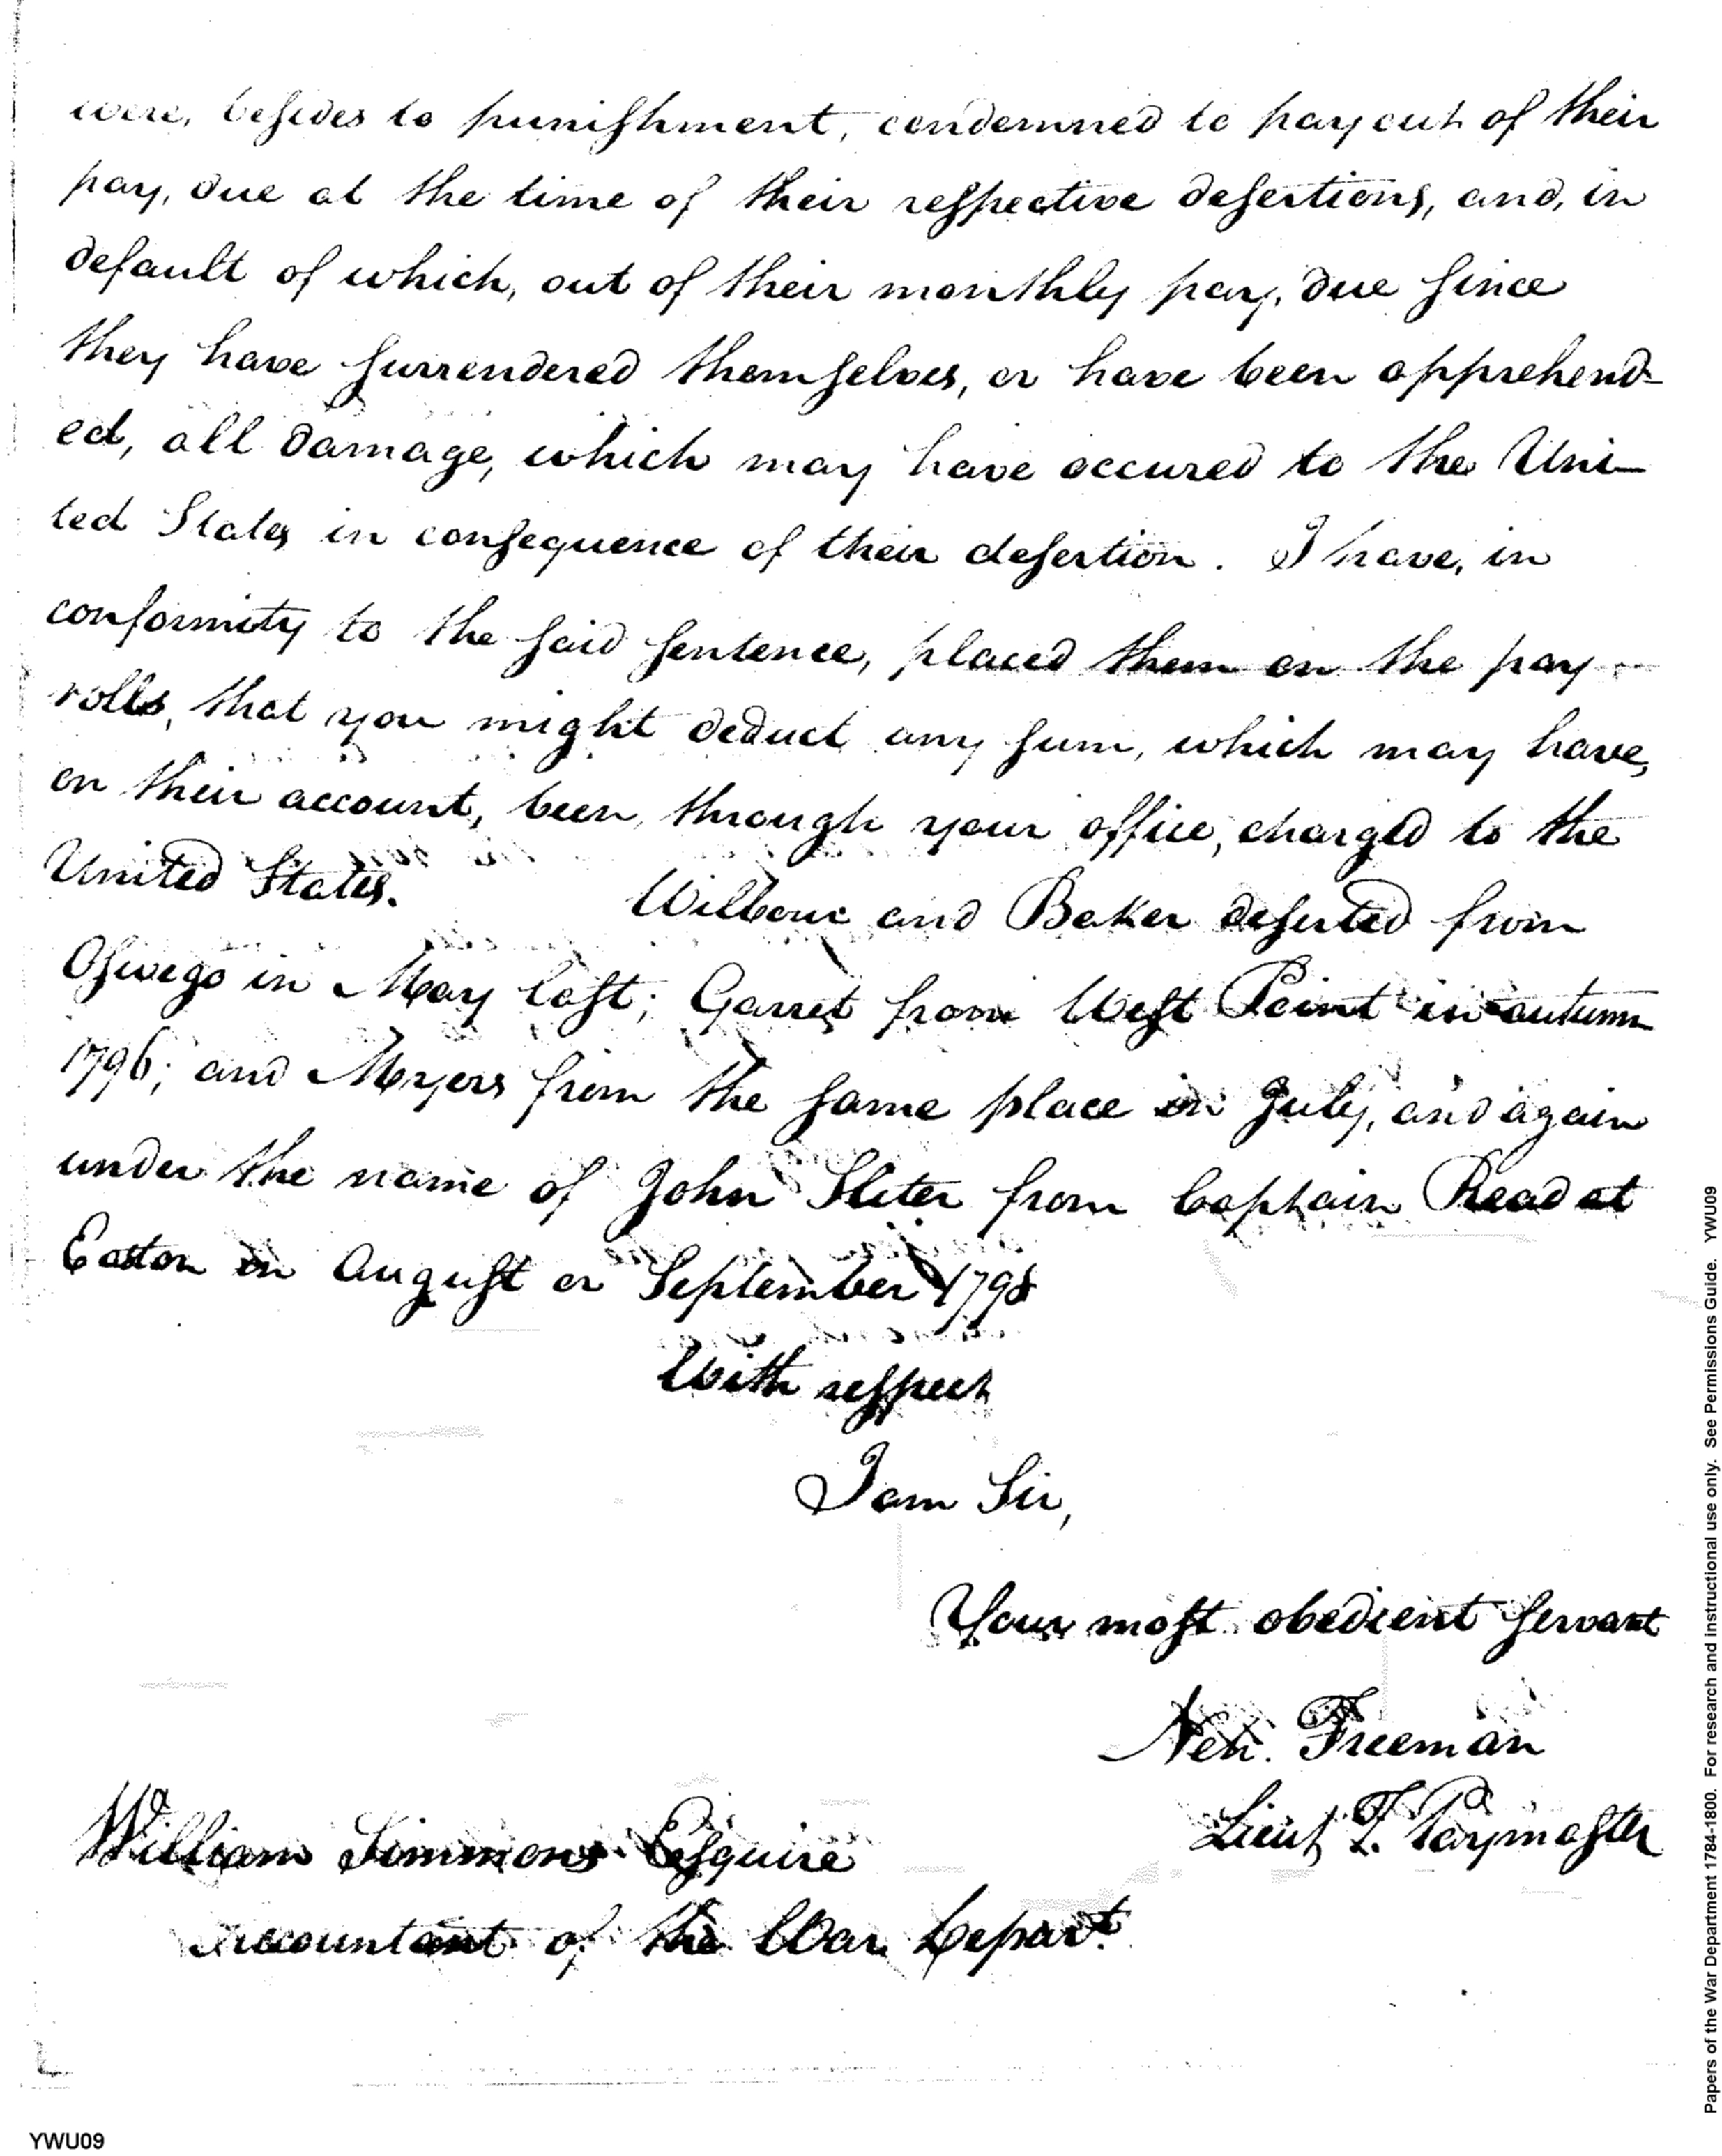 were, besides to punishment, condemned to pay out of their
pay, due at the time of their respective desertions, and, in
default of which, out of their monthly pay, due since
they have surrendered themselves, or have been apprehend-
ed, all damage, which may have occured to the Uni-
ted States in consequence of their desertion. I have, in
conformity to the said sentence, placed them on the pay
rolls, that you might deduct any sum, which may have,
on their account, been, through your office, charged to the
United States.
Wilbour and Baker deserted from
Oswego in May last; Garret from West Point in autumn
1796; and Myers from the same place in July, and again
under the name of John Sliter from Captain Read at
Easton in August or September 1798
With respect
I am Sir,
Your most obedient servant
Neh. Freeman
Lieut & Paymaster
William Simmons Esquire
Accountant of the War Depart.
Papers of the War Department 1784-1800. For research and instructional use only. See Permissions Guide. YWU09
YWU09